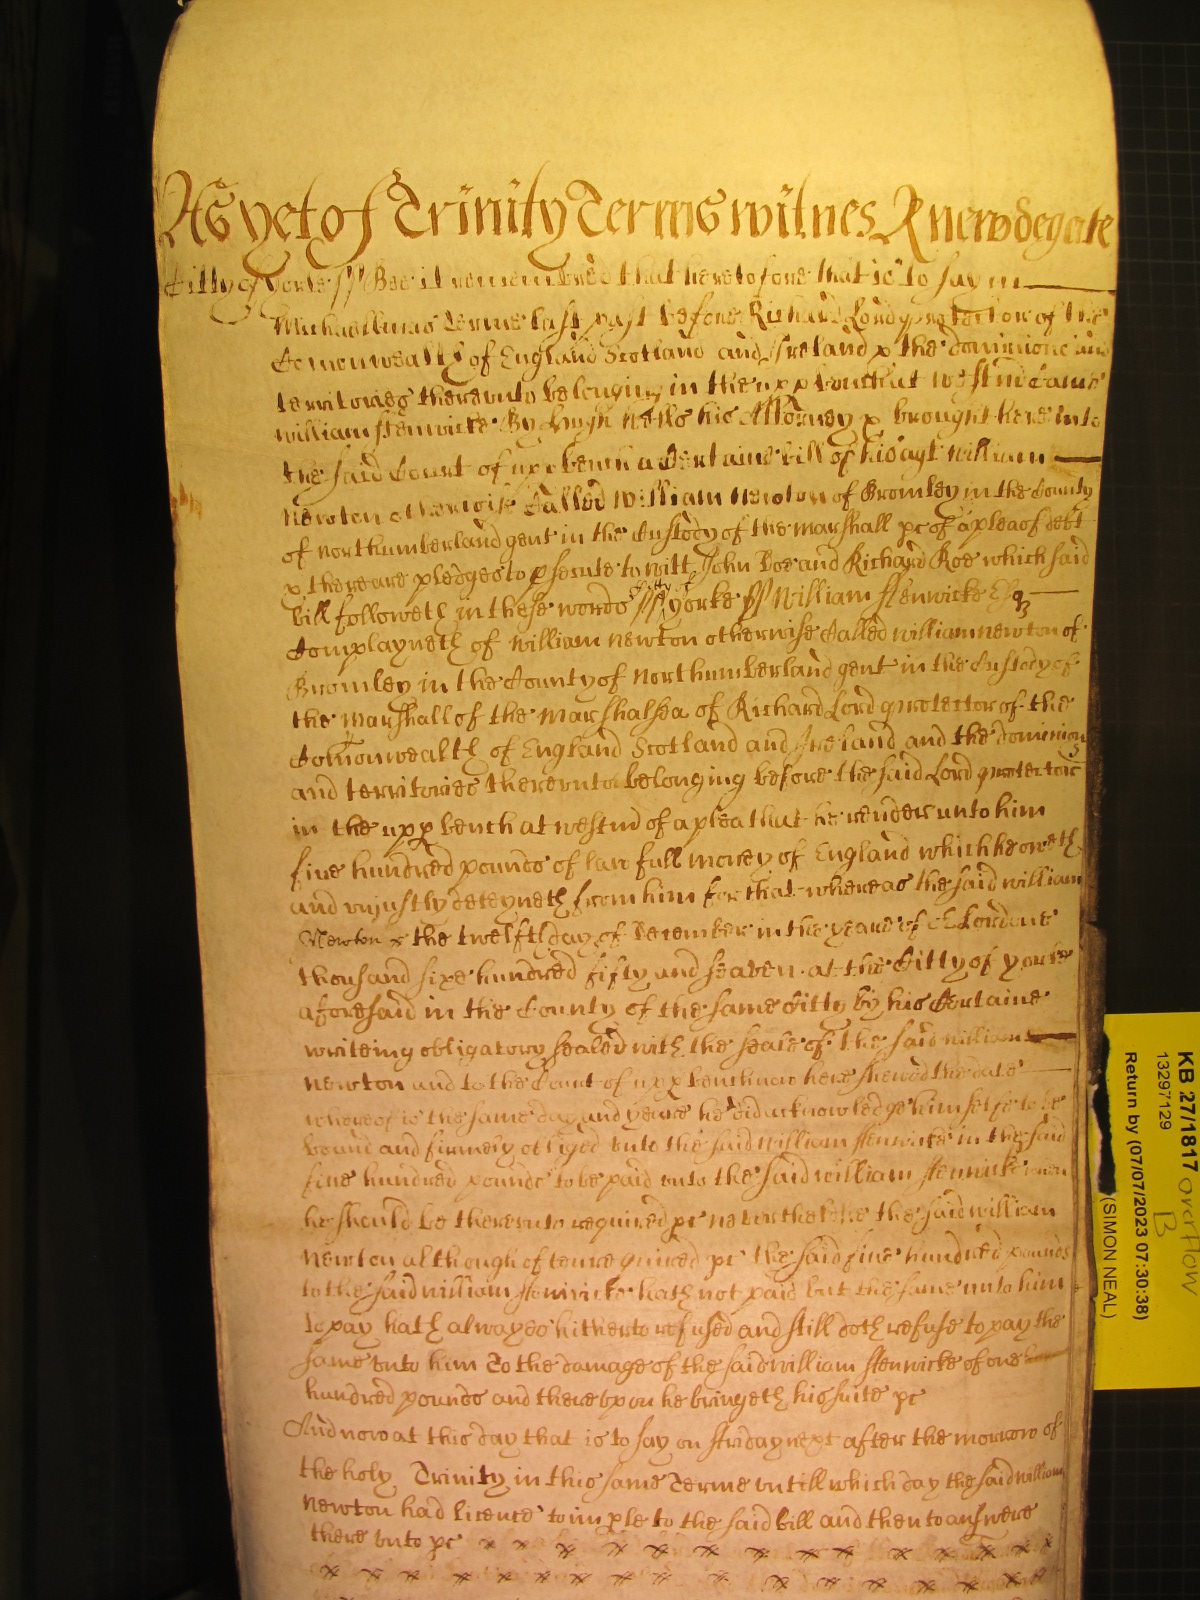 As yet of Trinity Terme witnes R Newdegate
Citty of Yorke ss Bee it remembred that heretofore that is to say in
Michaellmas terme last past before Richard Lord protector of the
Comonwealth of England Scotland and Ireland & the dominions and
territories thereunto belonging in the upp bench at Westmr came
William ffenwicke By Hugh Wells his Attorney & brought here into
the said Court of upp bench a Certaine bill of his agt William
Newton otherwise Called William Newton of Bromley in the County
of Northumberland gent in the Custody of the Marshall &c of a plea of debt
& there are pledges to psecute to witt John Doe and Richard Roe which said
bill followeth in these words ss Citty of Yorke ss William ffenwicke Esqr
Complayneth of William Newton otherwise Called William Newton of
Bromley in the County of Northumberland gent in the Custody of
the Marshall of the Marshalsea of Richard Lord protector of the
Comonwealth of England Scotland and Ireland and the dominions
and territories thereunto belonging before the said Lord protector
in the upp bench at Westmr of a plea that he render unto him
five hundred pounds of lawfull money of England which he oweth
and unjustly deteyneth from him for that whereas the said William
Newton & the twelfth day of December in the yeare of Lord one
thousand sixe hundred fifty and seaven at the Citty of Yorke
aforesaid in the County of the same Citty by his Certaine
writeing obligatory sealed with the seale of the said William
Newton and to the Court of upp bench now here shewed the date
whereof is the same day and yeare he did acknowledge himselfe to be
bound and firmely obliged unto the said William ffenwicke in the said
five hundred pounds to be paid unto the said William ffenwicke when
he should be thereunto required &c neverthelesse the said William
Newton although often required &c the said five hundred pounds
to the said William ffenwicke hath not paid but the same unto him
to pay hath alwayes hitherto refused and still doth refuse to pay the
same unto him To the damage of the said William ffenwicke of one
hundred pounds and thereupon he bringeth his suite &c
And now at this day that is to say on ffriday next after the morrow of
the holy Trinity in this same Terme untill which day the said William
Newton had licence to imple to the said bill and then to answere
there unto &c
KB 27/1817 overflow
B
13297129
Return by (07/07/2023 07:30:38)
(SIMON NEAL)